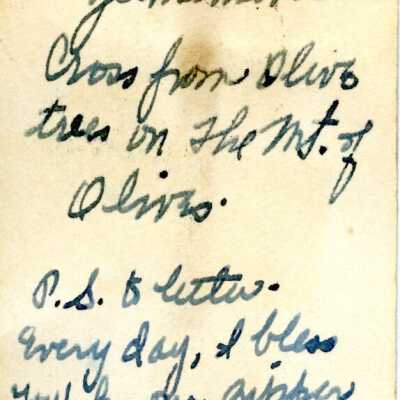 Cross from Olive
trees on The Mt. of
Olives.
P.S. to letter.
Every day, I bless
zipper